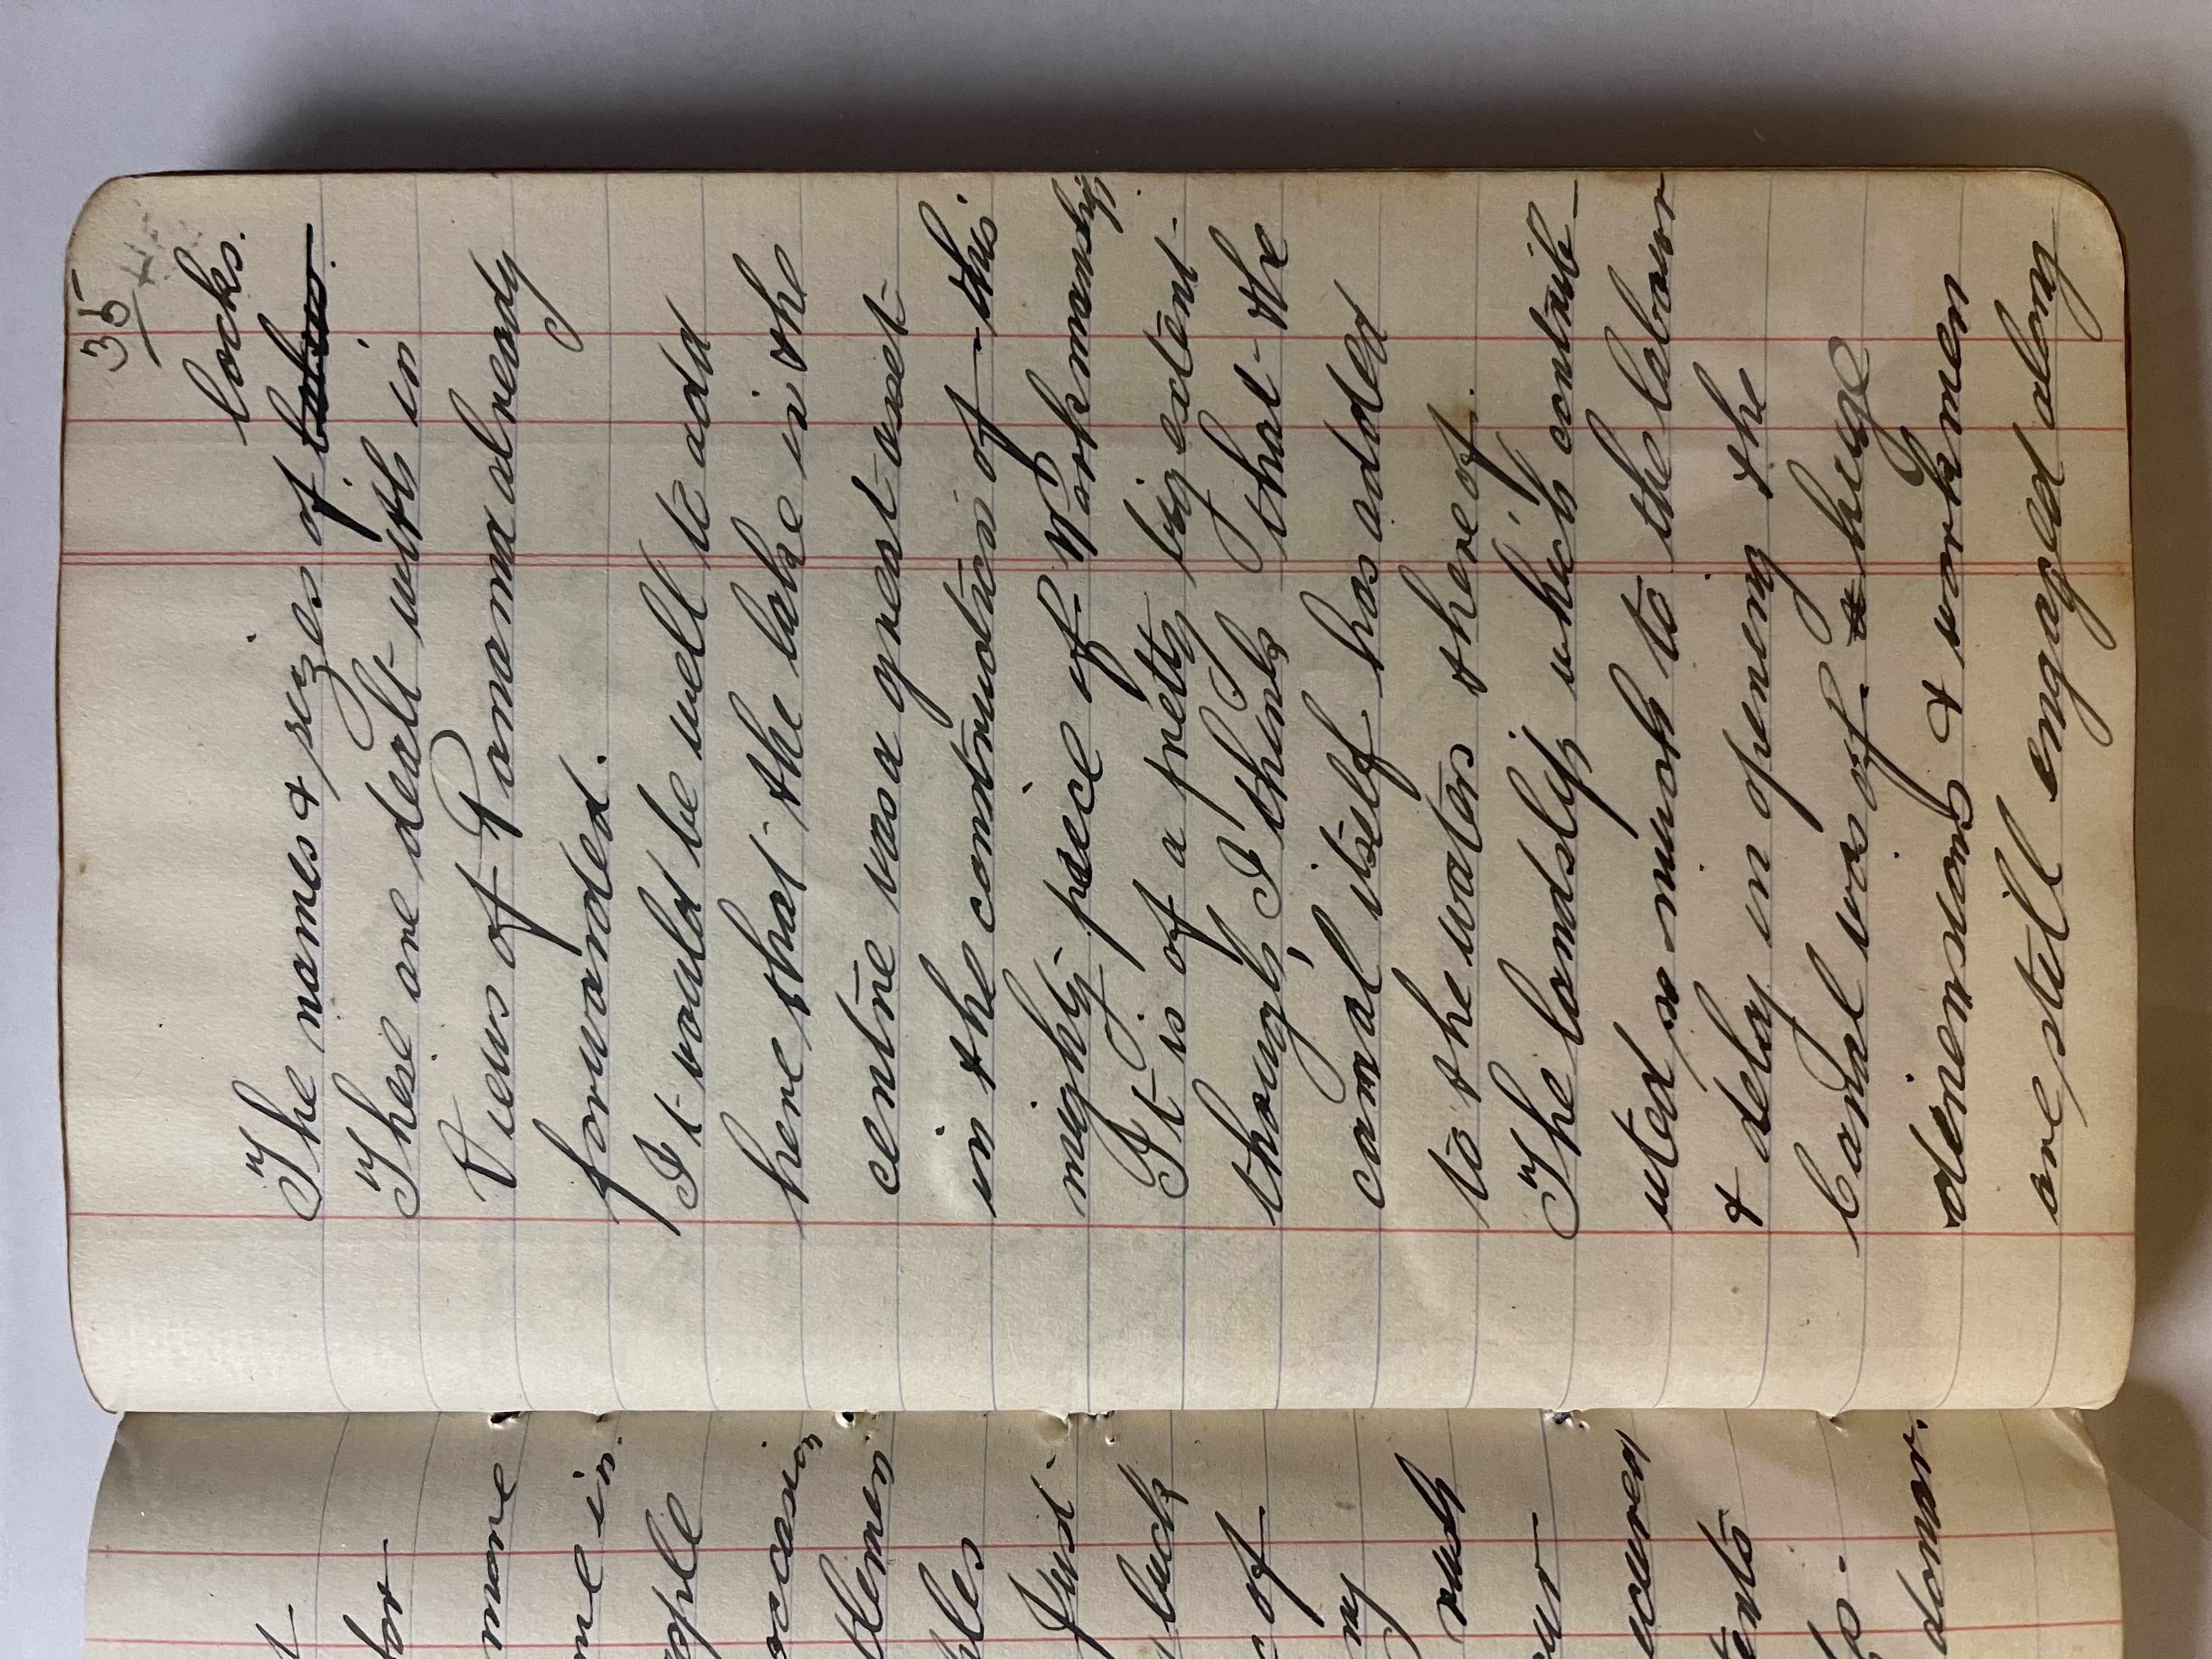 35
locks.
The names & sizes of totw
These are dealt with in
Views of Panama already
forwarded.
It would be well to add
here that the lake in the
centre was a great asset
in the construction of this
mighty piece of Workmanship.
It is of a pretty big extent
though, I think that the
canal itself has added
to the waters thereof.
The landslips which contrib-
uted so much to the labour
& delay in opening the
Canal was of a huge
dimensions & workmen
are still engaged along
for
more
me in.
ople
occasion
tlemen
les
Just
luck
of
ny
rush
our
cured
tents
to.
donar.